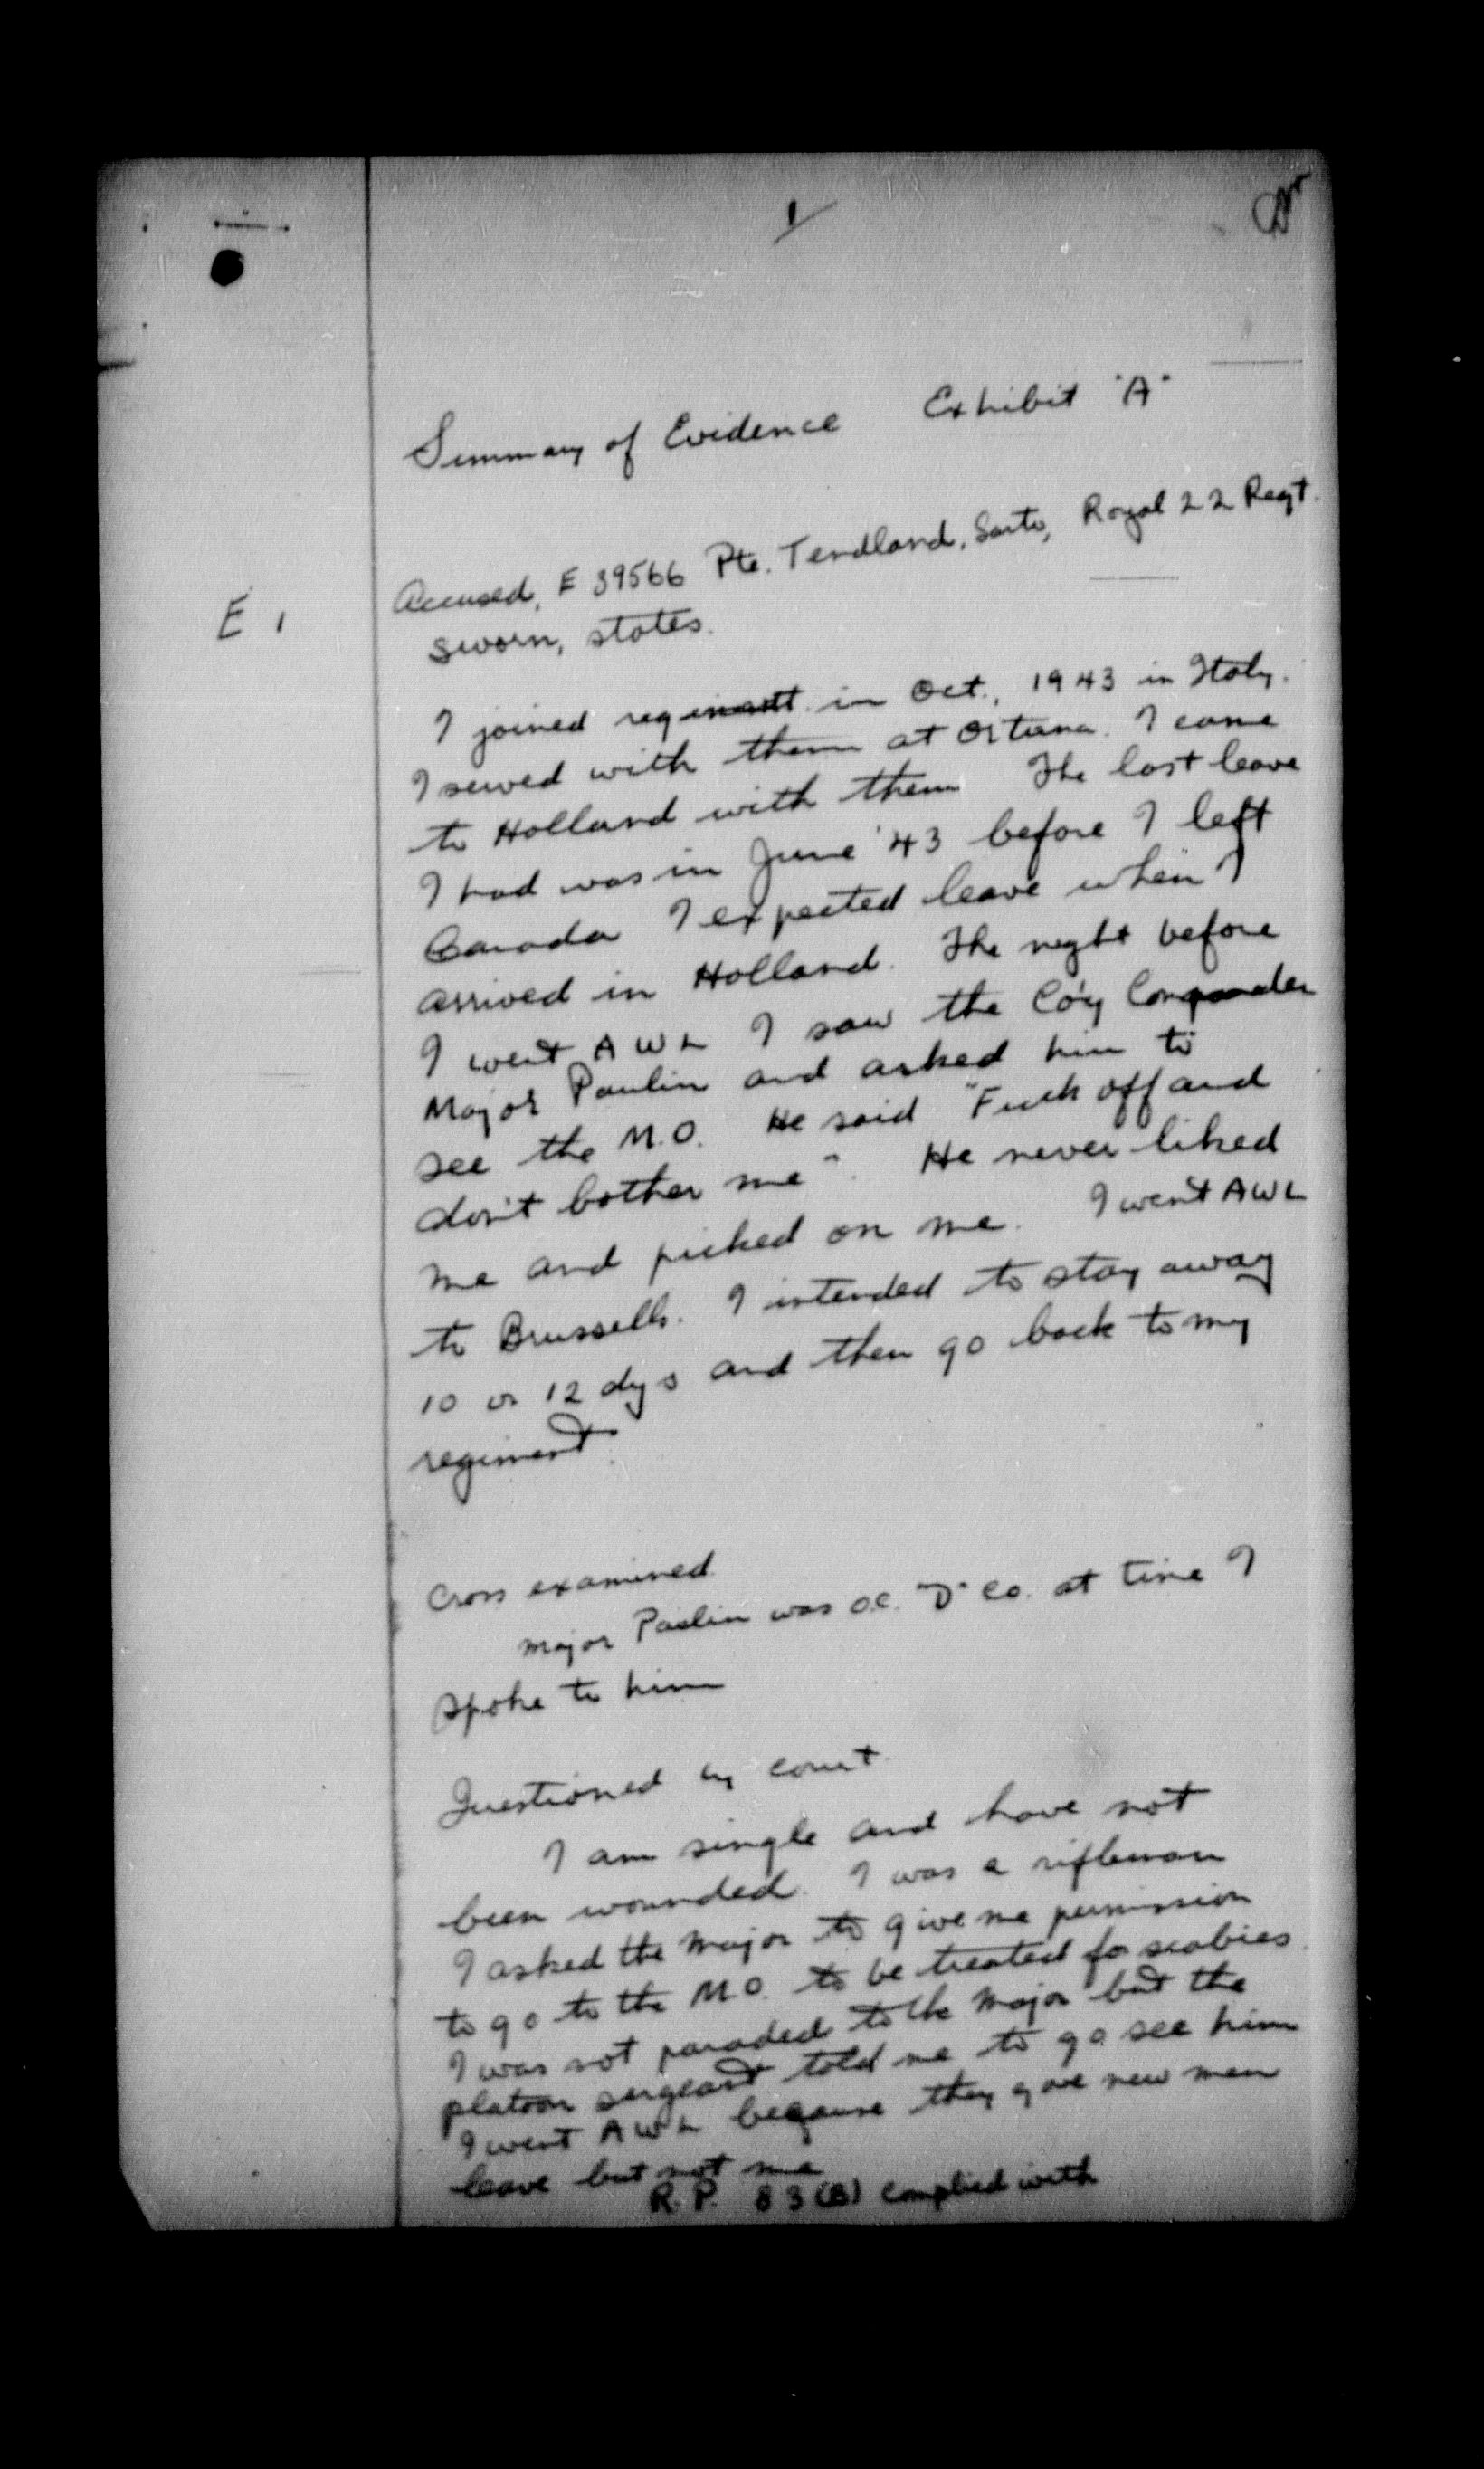 1
Summary of Evidence Exhibit "A"
E 1
Accused, E 39566 Pte. Tendland, Santo, Royal 22 Regt.
sworn, states.
I joined regiment in Oct., 1943 in Italy.
I served with them at Ortona. I came
to Holland with them The last leave
I had was in June '43 before I left
Canada I expected leave when I
arrived in Holland. The night before
I went AWL I saw the Co'y Commander
Major Paulin and asked him to
see the M.O. He said "Fuck off and
don't bother me". He never liked
me and picked on me. I went AWL
to Brussells. I intended to stay away
10 or 12 dys and then go back to my
regiment.
Cross examined.
Major Paulin was O.C. "D" Co. at time I
spoke to him
Questioned by court.
I am single and have not
been wounded. I was a rifleman
I asked the Major to give me permission
to go to the M.O. to be treated for scabies.
I was not paraded to the Major but the
platoon sergeant told me to go see him
I went AWL because they gave new men
leave but not me
R.P. 83(B) complied with